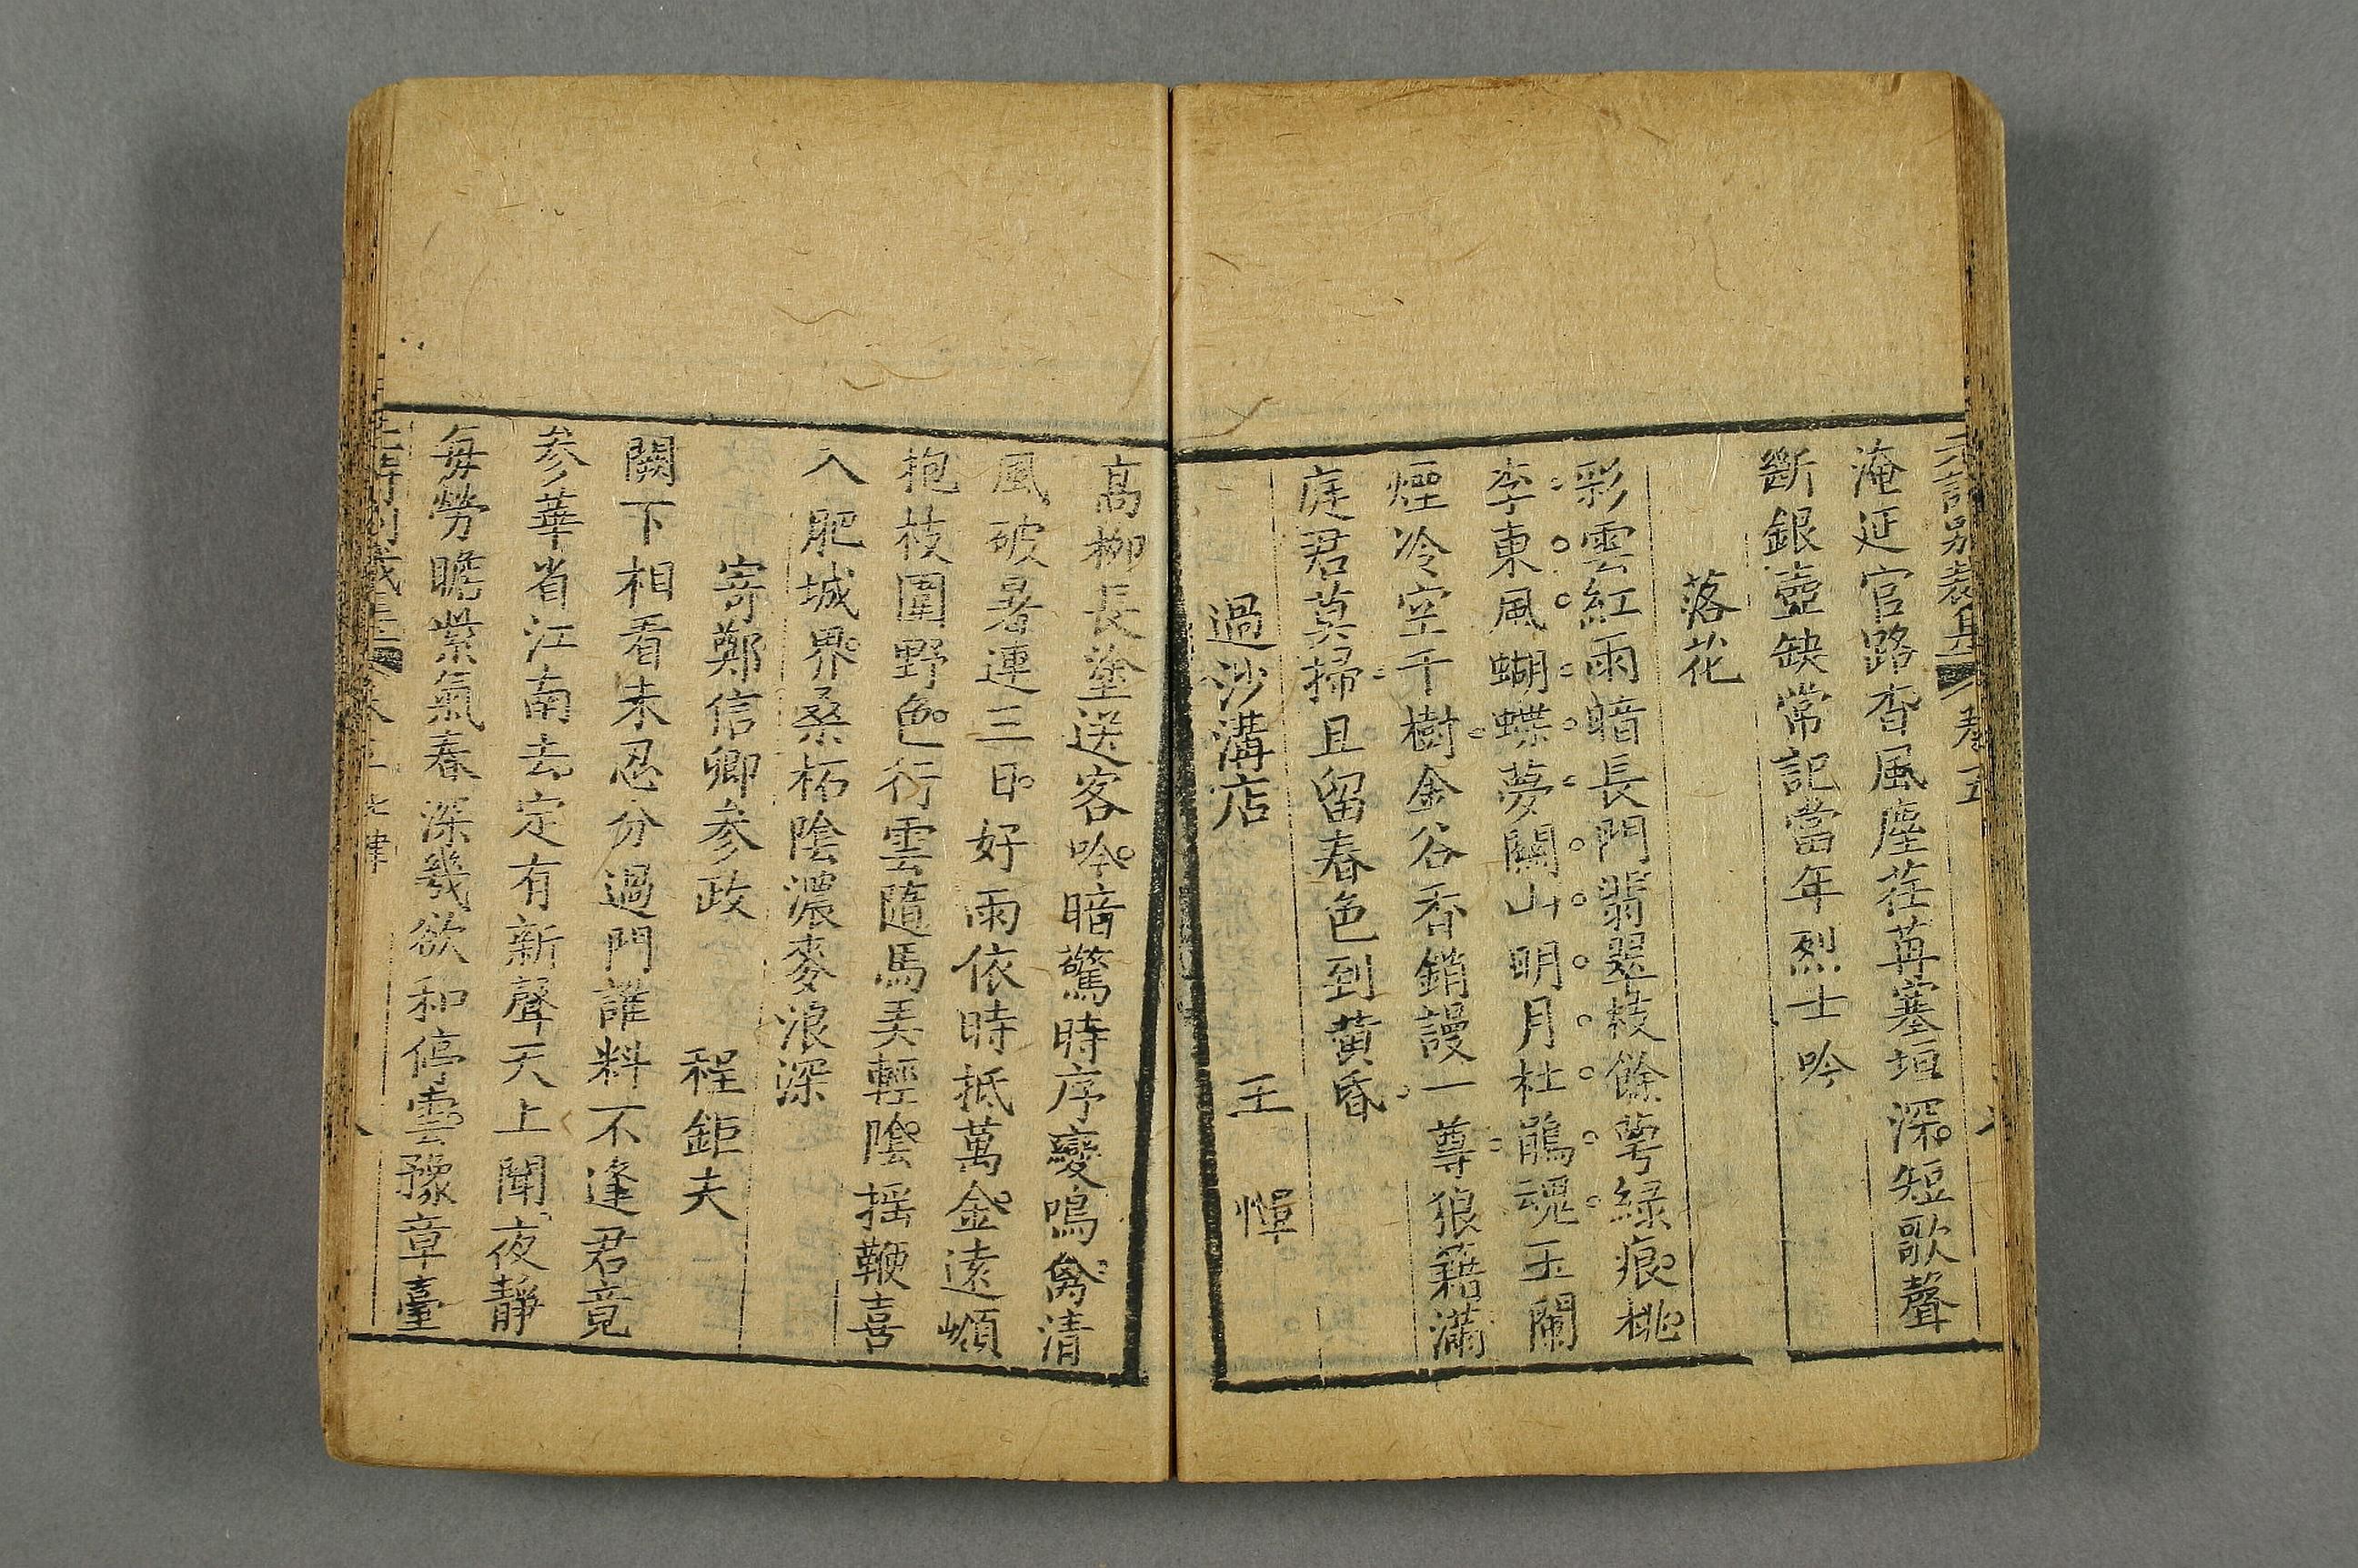 元詩別裁集 卷五
淹延官路杳風塵荏苒塞垣深短歌聲
斷銀壺缺常記當年烈士吟
落花
彩雲紅雨暗長門翡翠枝餘萼緑痕桃
李東風蝴蝶夢關山明月杜鵑魂玉闌
煙冷空千樹金谷香銷謾一尊狼藉滿
庭君莫掃且留春色到黃昏
過沙溝店 王惲
高栁長塗送客吟暗驚時序變鳴禽清
風破暑連三日好雨依時抵萬金遠嶺
抱枝圍野色行雲隨馬弄輕陰揺鞭喜
入肥城界桑柘陰濃麥浪深
寄鄭信卿参政 程鉅夫
闕下相看未忍分過門誰料不逢君竟
参華省江南去定有新聲天上聞夜靜
每勞瞻紫氣春深幾欲和停雲豫章臺